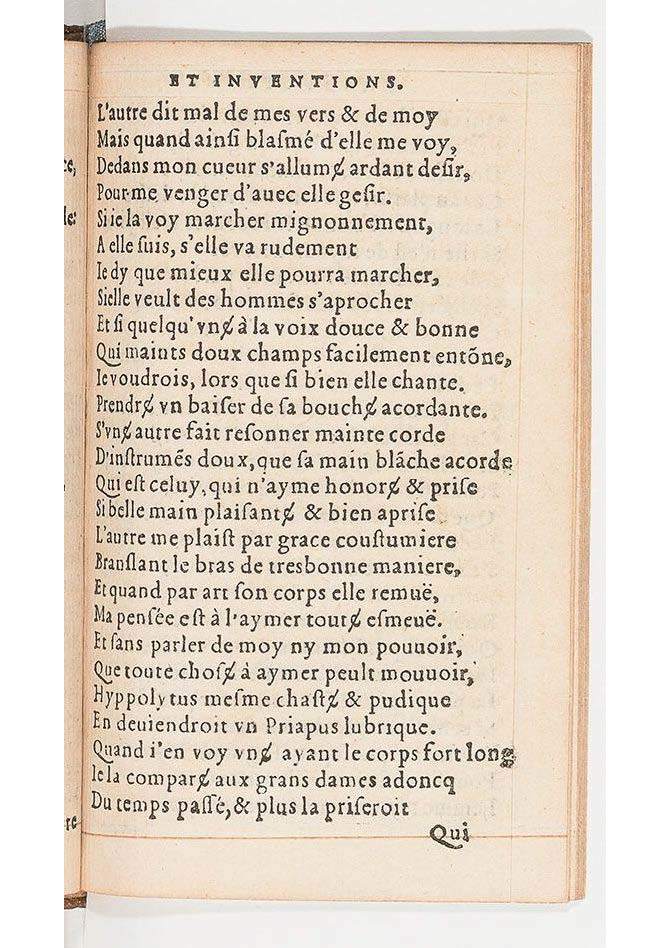 ET INVENTIONS.
L'autre dit mal de mes vers & de moy
Mais quand ainſi blaſmé d'elle me voy,
Dedans mon cueur s'allumɇ ardant deſir,
Pour me venger d'auec elle geſir.
Si ie la voy marcher mignonnement,
A elle ſuis, s'elle va rudement
Ie dy que mieux elle pourra marcher,
Si elle veult des hommes s'aprocher
Et ſi quelqu'vnɇ à la voix douce & bonne
Qui maints doux champs facilement entõne,
Ie voudrois, lors que ſi bien elle chante.
Prendrɇ vn baiſer de ſa bouchɇ acordante.
S'vnɇ autre fait reſonner mainte corde
D'inſtrumẽs doux, que ſa main blãche acorde
Qui eſt celuy, qui n'ayme honorɇ & priſe
Si belle main plaiſantɇ & bien apriſe
L'autre me plaiſt par grace couſtumiere
Branſlant le bras de tresbonne maniere,
Et quand par art ſon corps elle remuë,
Ma penſée eſt à l'aymer toutɇ eſmeuë.
Et ſans parler de moy ny mon pouuoir,
Que toute choſɇ à aymer peult mouuoir,
Hyppolytus meſme chaſtɇ & pudique
En deuiendroit vn Priapus lubrique.
Quand i'en voy vnɇ ayant le corps fort long
Ie la comparɇ aux grans dames adoncq
Du temps paſſé, & plus la priſeroit
Qui